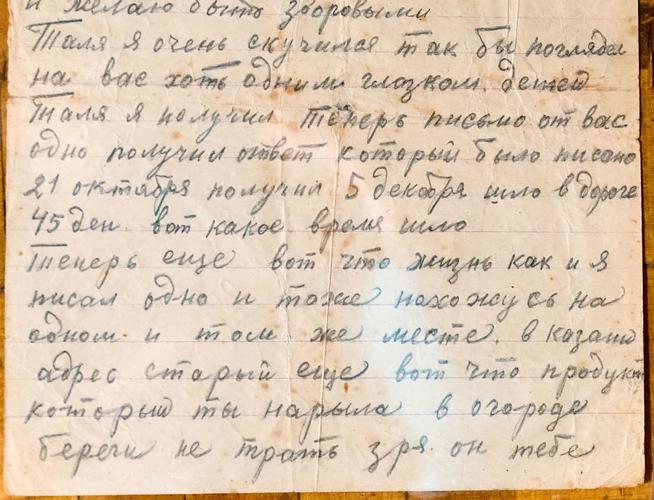 и желаю быть здоровыми
Таля я очень скучился так бы поглядел
на вас хоть одним глазком. детей
Таля я получил Теперь письмо от вас
одно получил ответ который было писано
21 октября получил 5 декабря шло в дороге
45 ден. вот какое время шло
Теперь еще вот что жизнь как и я
писал одно и тоже нахожусь на
одном и том же месте. в казани
адрес старый еще вот что продукт
который ты нарыла в огороде
береги не трать зря он тебе